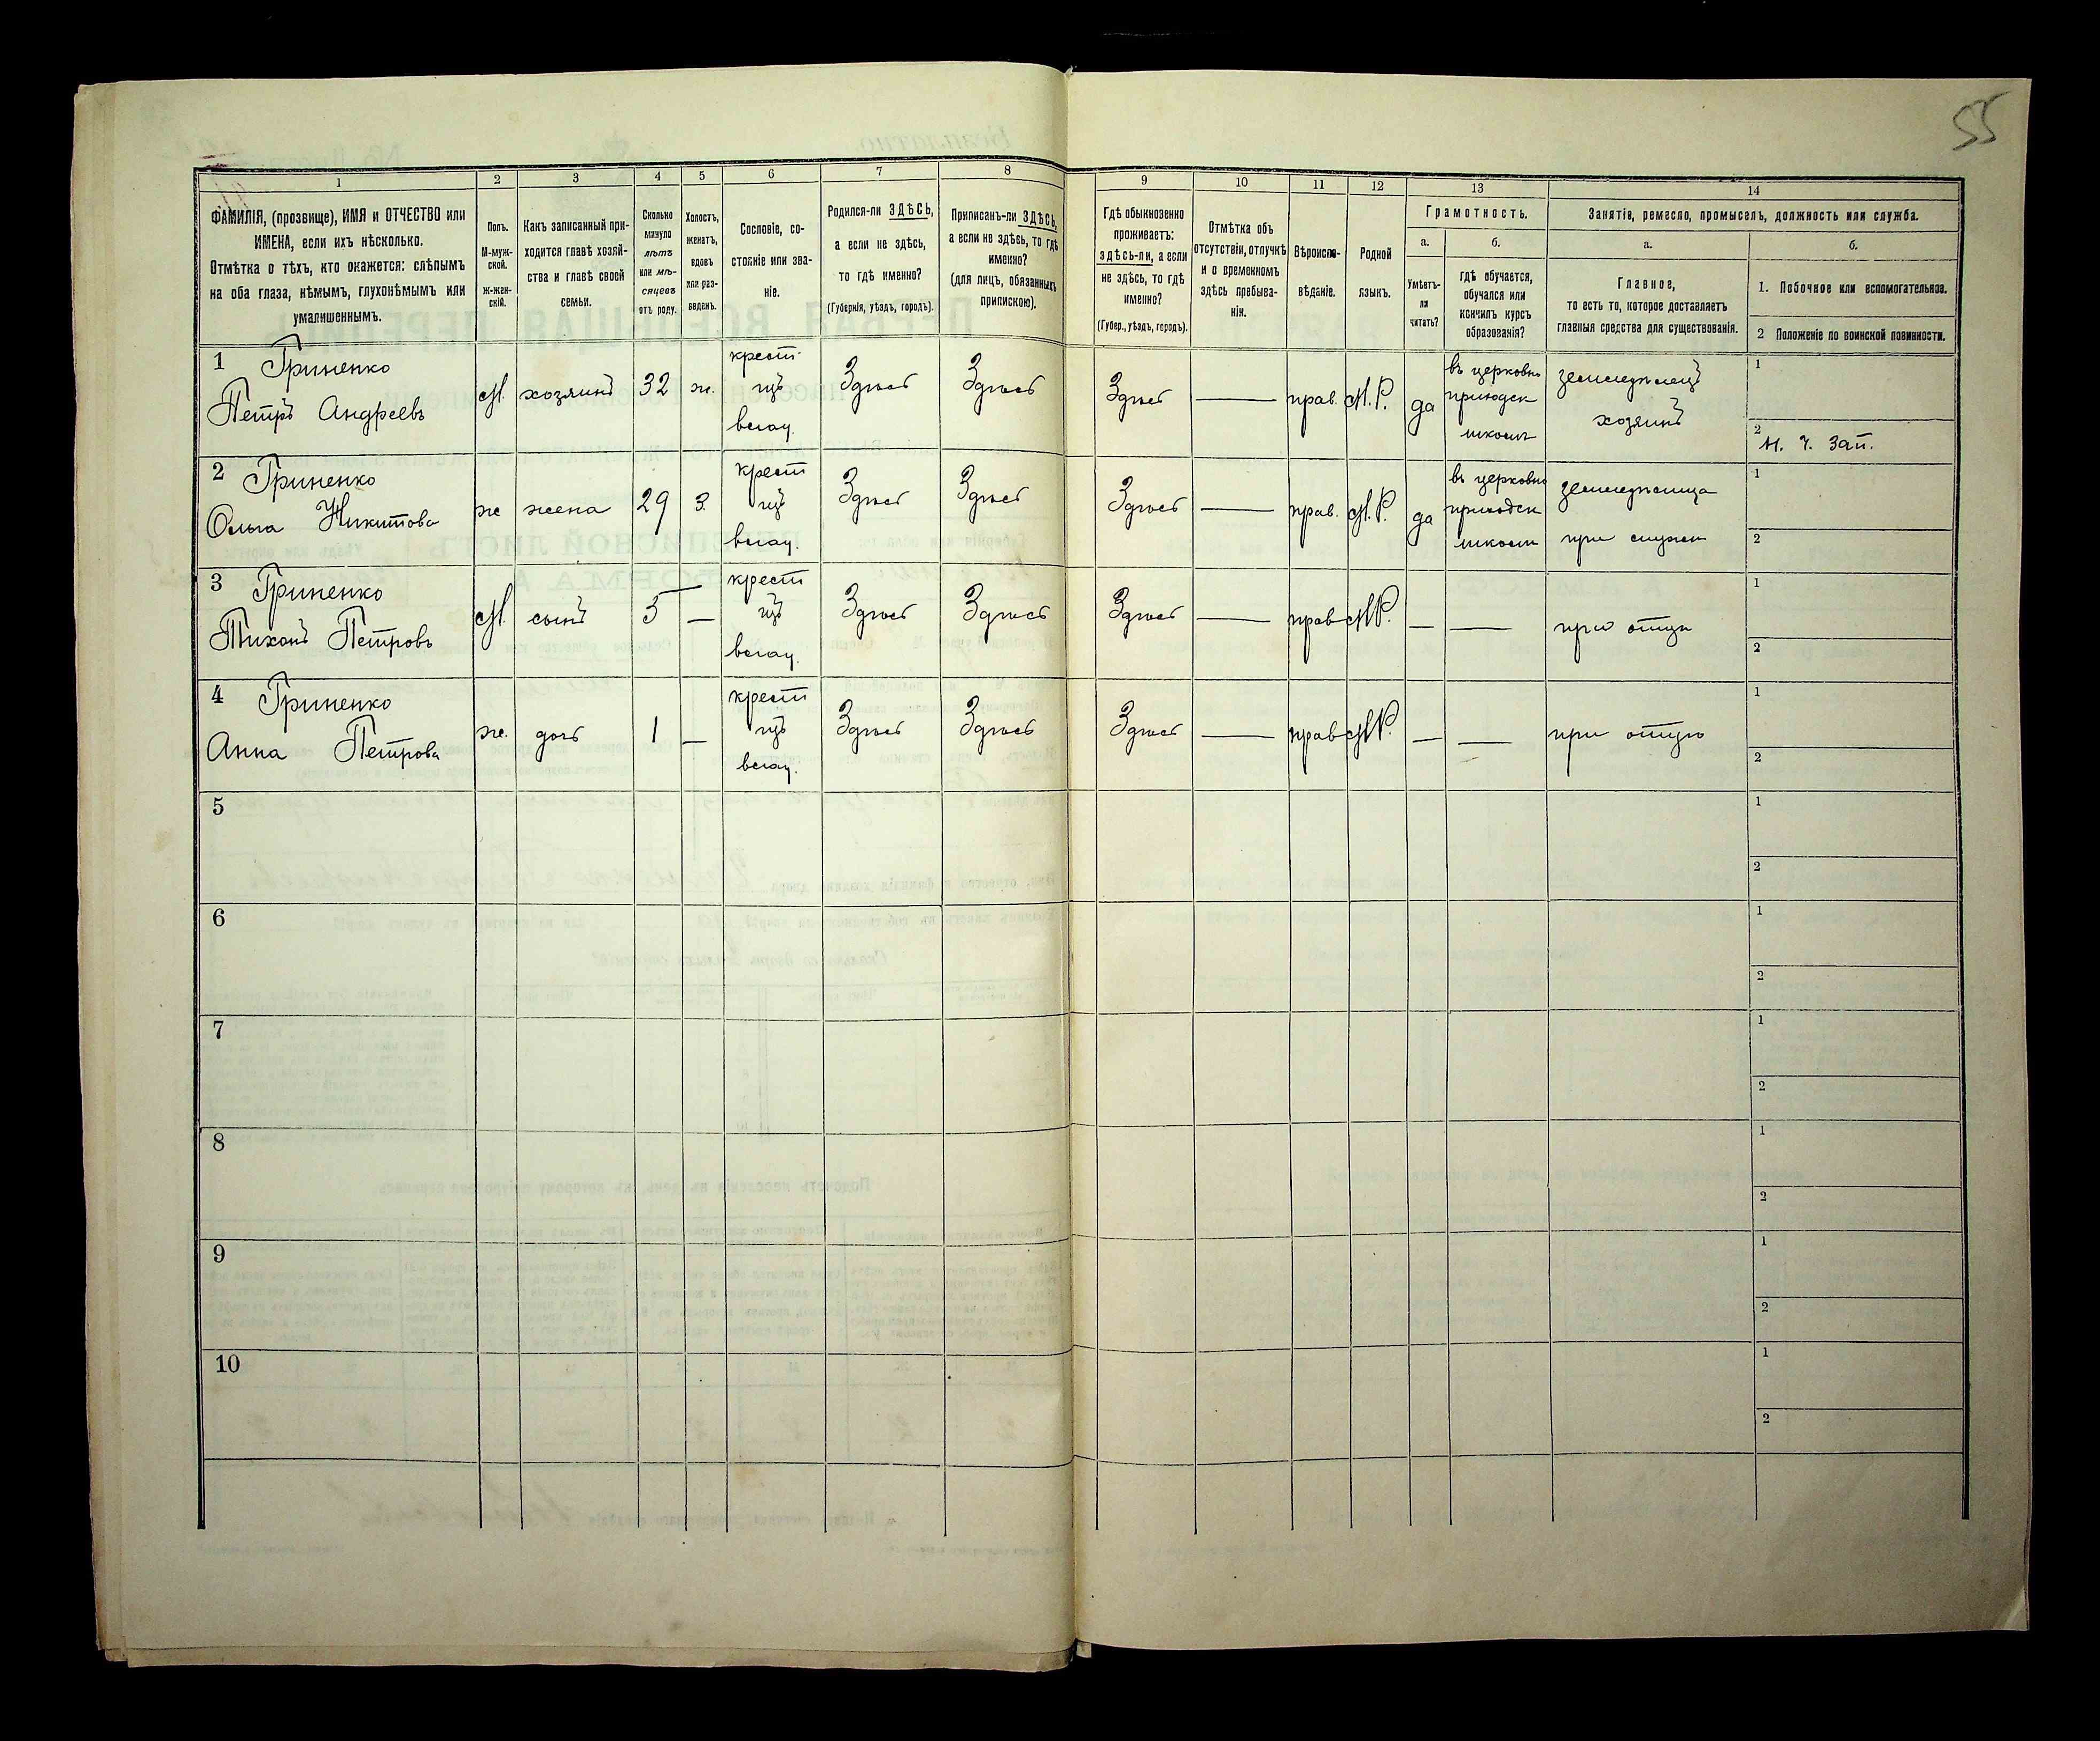 55
1 2 3 4 5 6 7 8 9 10 11 12 13 14
ФАМИЛІЯ, (прозвище), ИМЯ и ОТЧЕСТВО или
ИМЕНА, если ихъ нѣсколько.
Отмѣтка о тѣхъ, кто окажется: слѣпымъ
на оба глаза, нѣмымъ, глухонѣмымъ или
умалишеннымъ.
Полъ.
М-муж-
ской.
Ж-жен-
скій.
Какъ записанный при-
ходится главѣ хозяй-
ства и главѣ своей
семьи.
Сколько
минуло
лѣтъ
или мѣ-
сяцевъ
отъ роду.
Холостъ,
женатъ,
вдовъ
или раз-
веденъ.
Сословіе, со-
стояніе или зва-
ніе.
Родился-ли ЗДѢСЬ,
а если не здѣсь,
то гдѣ именно?
(Губернія, уѣздъ, городъ).
Приписанъ-ли ЗДѢСЬ,
а если не здѣсь, то гдѣ
именно?
(для лицъ, обязанныхъ
припискою).
Гдѣ обыкновенно
проживаетъ:
здѣсь-ли, а если
не здѣсь, то гдѣ
именно?
(Губер., уѣздъ, городъ).
Отмѣтка объ
отсутствіи, отлучкѣ
и о временномъ
здѣсь пребыва-
ніи.
Вѣроиспо-
вѣданіе.
Родной
языкъ.
Грамотность.
а.
Умѣетъ-
ли
читать?
б.
гдѣ обучается,
обучался или
кончилъ курсъ
образованія?
Занятія, ремесло, промыселъ, должность или служба.
а.
Главное,
то есть то, которое доставляетъ
главныя средства для существованія.
б.
1. Побочное или вспомогательное.
2 Положеніе по воинской повинности.
1 Гриненко
Петръ Андреевъ
М. хозяинъ 32 ж.
крест.
изъ
влад.
Здѣсь Здѣсь Здѣсь — прав. М.Р. да
въ церковно
приходск
школѣ
земледѣлецъ
хозяинъ
1
2
Н. Ч. Зап.
2 Гриненко
Ольга Никитова
ж жена 29 з.
крест
изъ
влад.
Здѣсь Здѣсь Здѣсь — прав. М.Р. да
въ церковно
приходск
школѣ
земледѣлица
при мужѣ
1
2
3 Гриненко
Тихонъ Петровъ
М. сынъ 5 —
крест
изъ
влад.
Здѣсь Здѣсь Здѣсь — прав М.Р. — —
при отцѣ
1
2
4 Гриненко
Анна Петрова
ж. дочь 1 —
крест
изъ
влад.
Здѣсь Здѣсь Здѣсь — прав М.Р. — —
при отцѣ
1
2
5
1
2
6
1
2
7
1
2
8
1
2
9
1
2
10
1
2